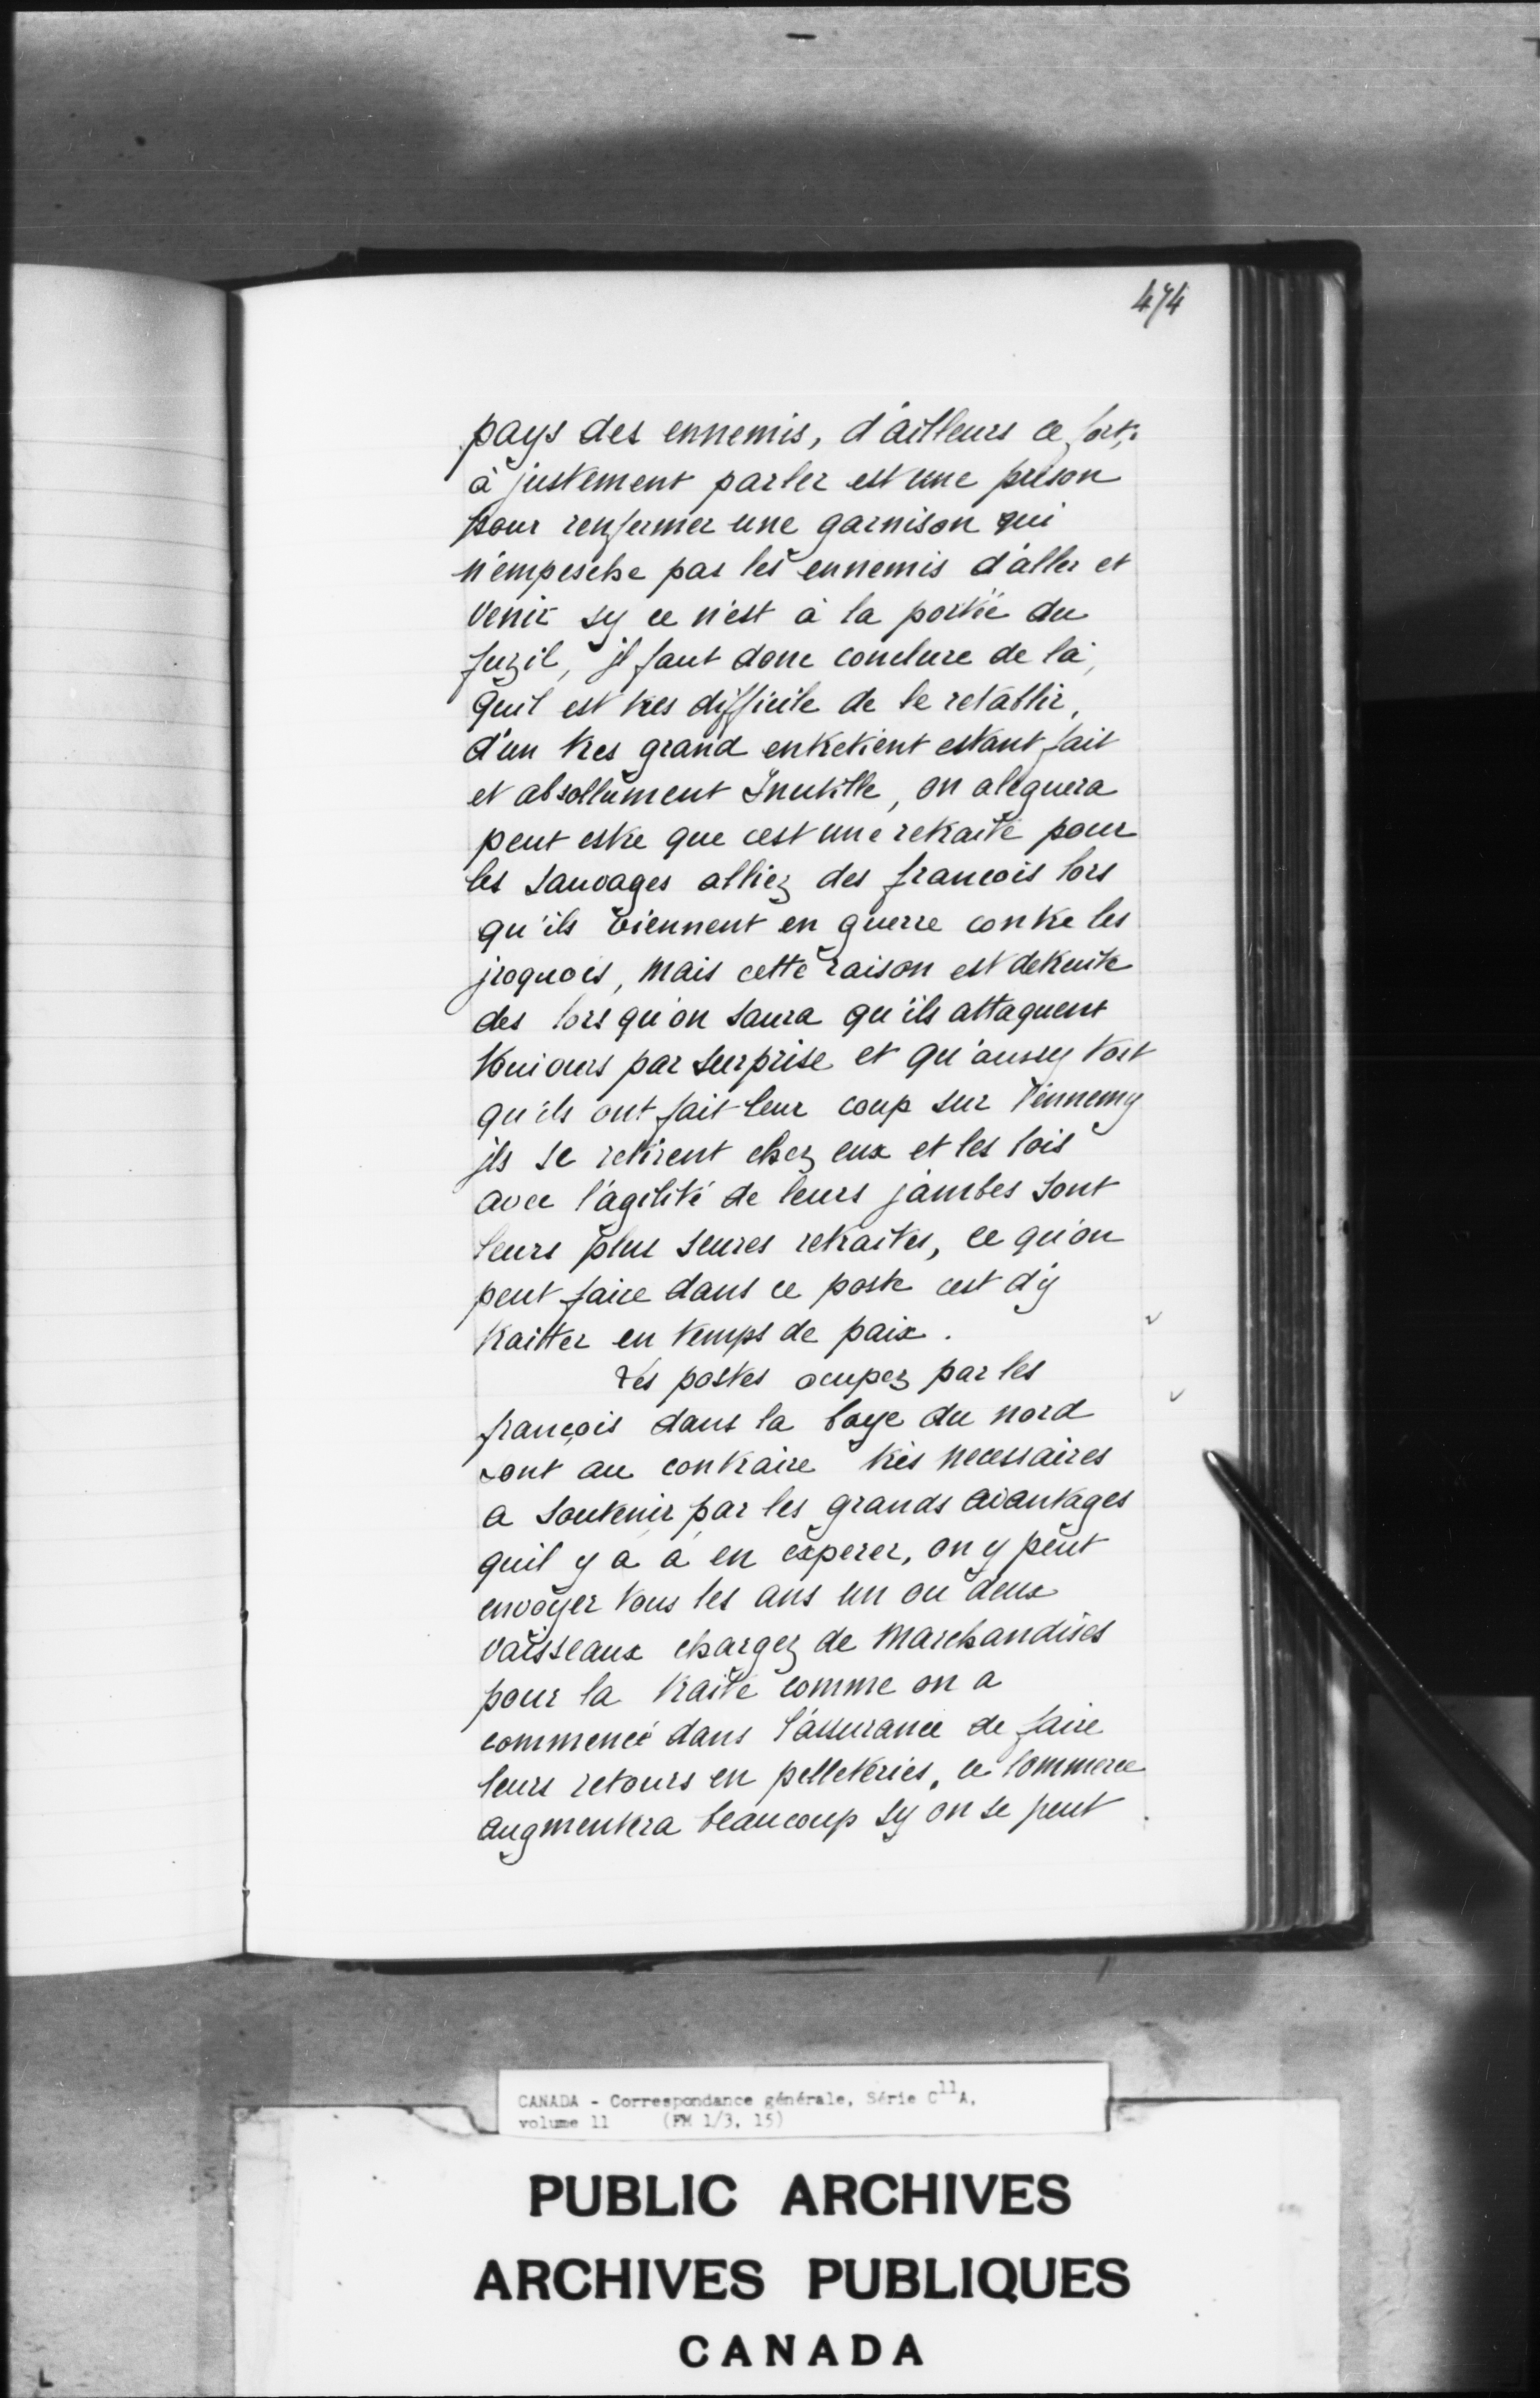 474
pays des ennemis, d'ailleurs ce fort,
à justement parler est une prison
pour renfermer une garnison qui
n'empesche pas les ennemis d'aller et
venir sy ce n'est à la portée du
fuzil, jl faut donc conclure de là,
quil est tres difficile de le retablir,
d'un tres grand entretient estant fait
et absollument Inutille, on aleguera
peut estre que cest une retraite pour
les sauvages alliez des francois lors
qu'ils viennent en guerre contre les
jroquois, mais cette raison est detruite
des lors qu'on saura qu'ils attaquent
toujours par surprise et qu'aussy tost
qu'ils ont fait leur coup sur l'ennemy
jls se retirent chez eux et les bois
avec l'agilité de leurs jambes sont
leurs plus seures retraites, ce qu'on
peut faire dans ce poste cest d'y
traitter en temps de paix.
Les postes ocupez par les
françois dans la baye du nord
sont au contraire très necessaires
a soutenir par les grands avantages
quil y a à en esperer, on y peut
envoyer tous les ans un ou deux
vaisseaux chargez de marchandises
pour la traite comme on a
commencé dans l'assurance de faire
leurs retours en pelleteries, ce commerce
augmentera beaucoup sy on se peut
CANADA - Correspondance générale, Série C11A,
volume 11 (FM 1/3, 15)
PUBLIC ARCHIVES
ARCHIVES PUBLIQUES
CANADA